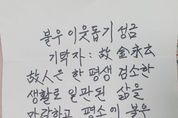 불우 이웃돕기 성금
기탁자: 故 金永
故人은 한 평생 검소한
생활로 일관된 삶을
마감하고 평소에 불우